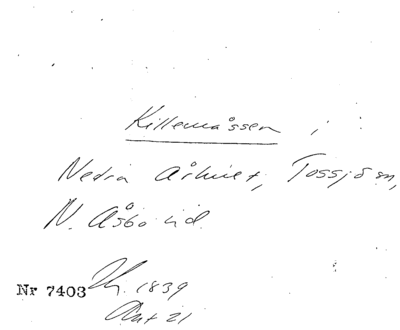 Killemåssen ;
Nedra Århult, Tossjö sn,
N. Åsbo hd.
Nr 7403 1839
Akt 21